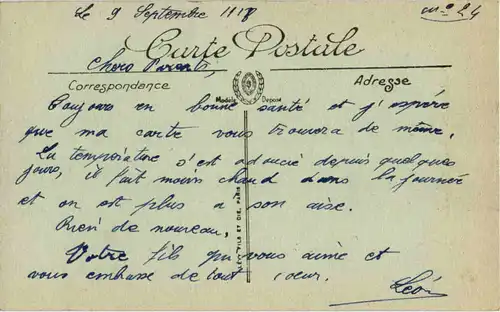 Le 9 Septembre
nº 24
Carte Postale
Chers Parents,
Correspondance
Adresse
Modèle Déposé
Toujours en bonne santé et j'espère
que ma carte vous trouvera de même.
La température s'est adoucie depuis quelques
jours, il fait moins chaud dans la journée
et on est plus a son aise.
Rien de nouveau.
Votre fils qui vous aime et
vous embrasse de tout coeur.
Léon
LÉVY FILS ET CIE, PARIS